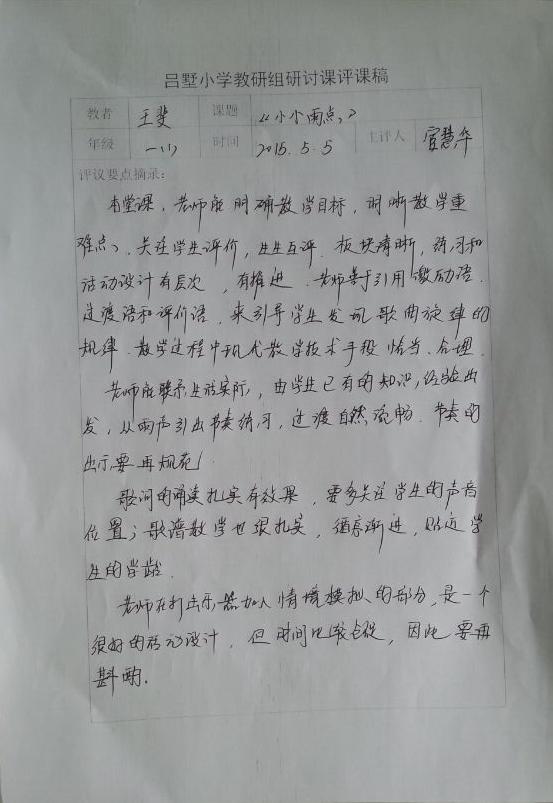 吕墅小学教研组研讨课评课稿
教者 王斐 课题 《小小雨点》
年级 一(1) 时间 2015.5.5 主评人 宦慧华
评议要点摘录：
本堂课，老师能明确教学目标，明晰教学重
难点，关注学生评价，生生互评。板块清晰，练习和
活动设计有层次，有推进。老师善于引用激励语，
过渡语和评价语，来引导学生发现歌曲旋律的
规律。教学过程中现代教学技术手段恰当、合理。
老师能联系生活实际，由学生已有的知识，经验出
发，从雨声引出节奏练习，过渡自然流畅。节奏的
出示要再规范！
歌词的诵读扎实有效果，要多关注学生的声音
位置；歌谱教学也很扎实，循序渐进，贴近学
生的学龄。
老师在打击乐器加入情境模拟的部分，是一个
很好的活动设计，但时间比较仓促，因此要再
斟酌。